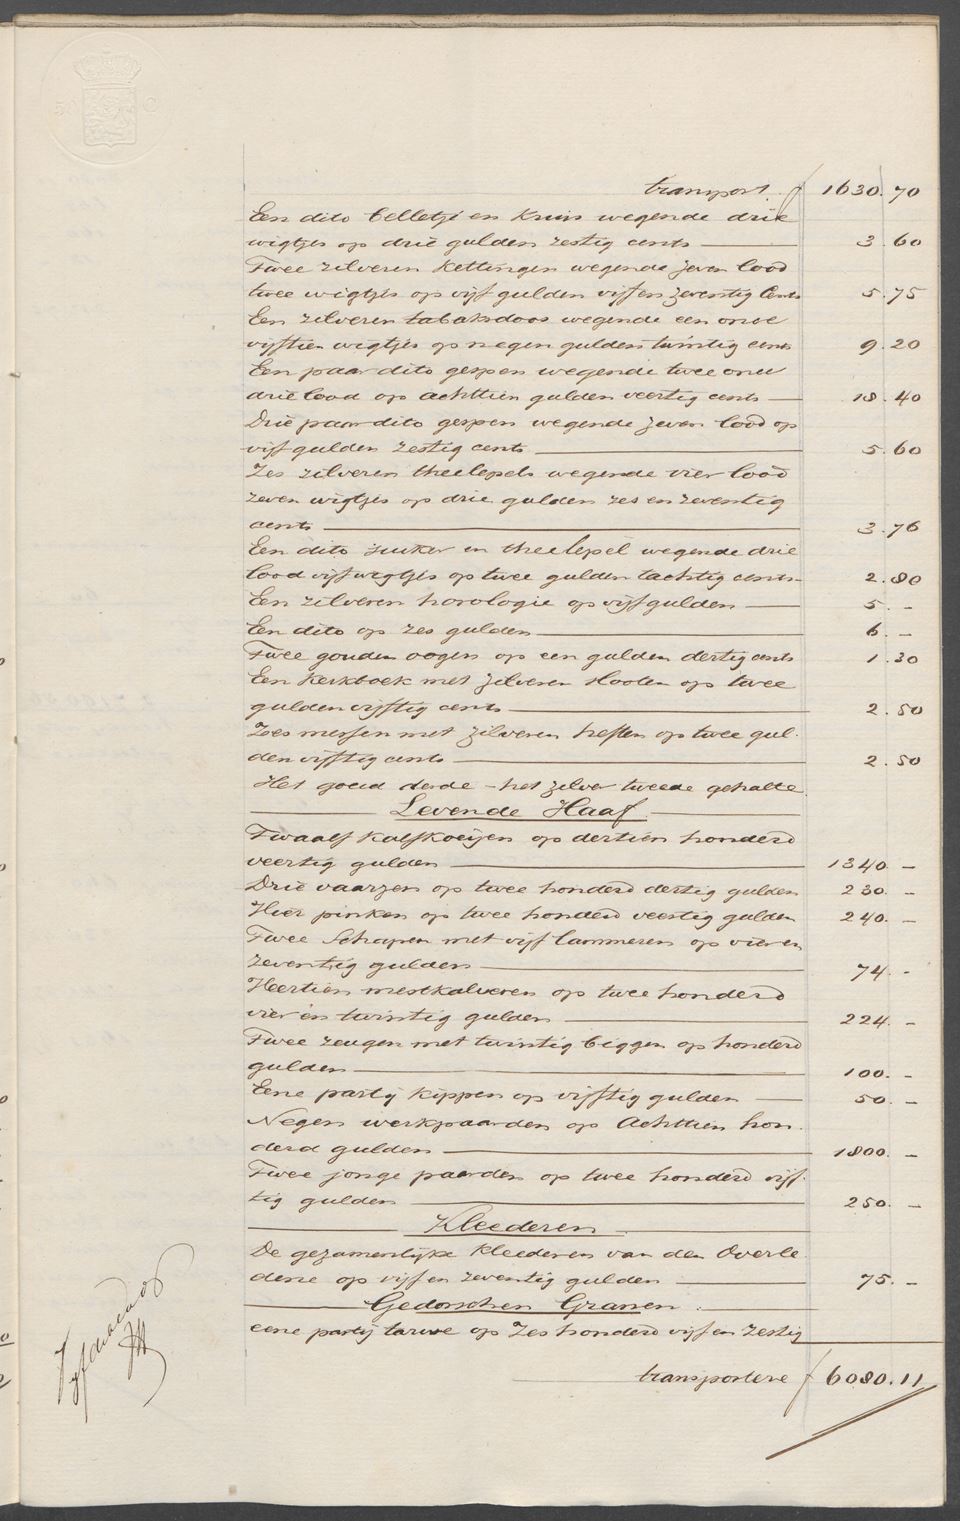 50 C
transport f 1630.70
Een dito belletje en kruis wegende drie
wigtjes op drie gulden zestig cents 3.60
Twee zilveren kettingen wegende zeven lood
twee wigtjes op vijf gulden vijf en zeventig Cents 5.75
Een zilveren tabaksdoos wegende een once
vijftien wigtjes op negen gulden twintig cents 9.20
Een paar dito gespen wegende twee once
drie lood op achttien gulden veertig cents 18.40
Drie paar dito gespen wegende zeven lood op
vijf gulden zestig cents 5.60
Zes zilveren theelepels wegende vier lood
zeven wigtjes op drie gulden zes en zeventig
cents 3.76
Een dito suiker en theelepel wegende drie
lood vijf wigtjes op twee gulden tachtig cents 2.80
Een zilveren horologie op vijf gulden 5.-
Een dito op zes gulden 6.-
Twee gouden oogen op een gulden dertig cents 1.30
Een Kerkboek met zilveren Slooten op twee
gulden vijftig cents 2.50
Zes messen met zilveren heften op twee gul-
den vijftig cents 2.50
Het goud derde - het zilver tweede gehalte.
Levende Haaf.
Twaalf kalfkoeijen op dertien honderd
veertig gulden 1340.-
Drie vaarzen op twee honderd dertig gulden 230.-
Vier pinken op twee honderd veertig gulden 240.-
Twee Schapen met vijf lammeren op vier en
zeventig gulden 74.-
Veertien mestkalveren op twee honderd
vier en twintig gulden 224.-
Twee zeugen met twintig biggen op honderd
gulden 100.-
Eene partij kippen op vijftig gulden 50.-
Negen werkpaarden op Achttien hon-
derd gulden 1800.-
Twee jonge paarden op twee honderd vijf-
tig gulden 250.-
Kleederen
De gezamenlijke kleederen van den Overle-
dene op vijf en zeventig gulden 75.-
Gedorschen Granen.
eene partij tarwe op Zes honderd vijf en zestig
transportere f 6080.11